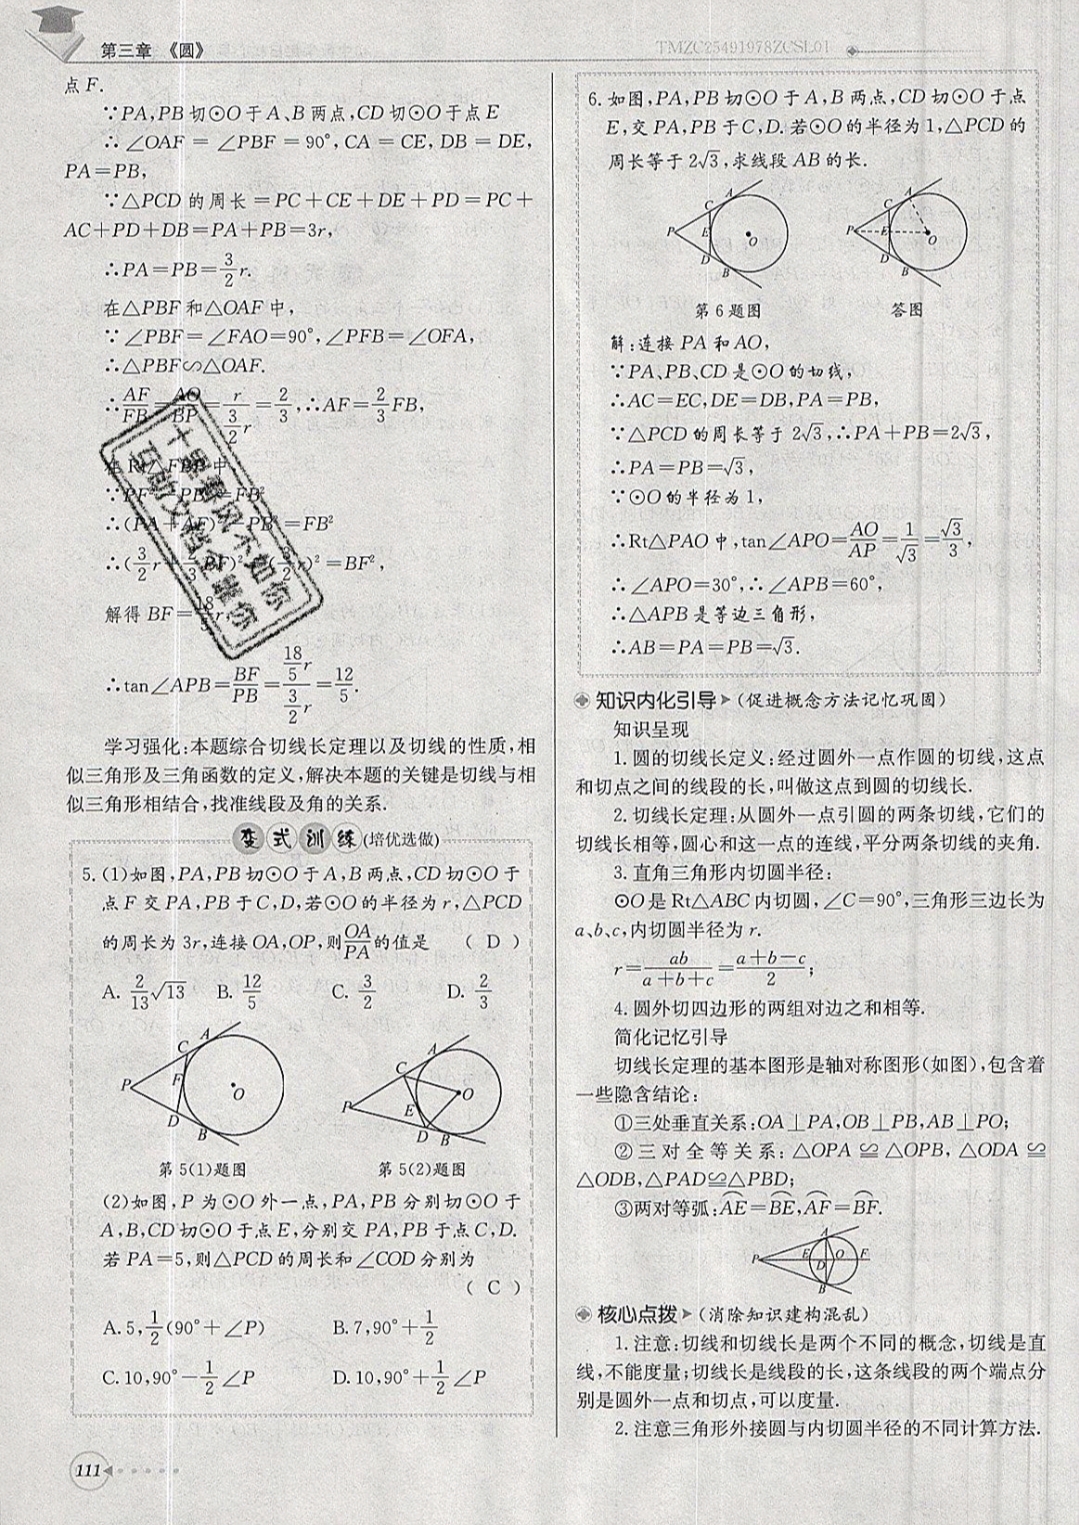 第三章 《圆》
TMZC25491978ZCSL01
点F.
∵PA,PB切⊙O于A、B两点,CD切⊙O于点E
∴∠OAF=∠PBF=90°,CA=CE,DB=DE,
PA=PB,
∵△PCD的周长=PC+CE+DE+PD=PC+
AC+PD+DB=PA+PB=3r,
∴PA=PB=3/2r.
在△PBF和△OAF中,
∵∠PBF=∠FAO=90°,∠PFB=∠OFA,
∴△PBF∽△OAF.
∴AF/FB=AO/BP=r/(3/2r)=2/3,∴AF=2/3FB,
在Rt△FBP中,
∵PF²-PB²=FB²
∴(PA+AF)²-PB²=FB²
∴(3/2r+2/3BF)²-(3/2r)²=BF²,
解得BF=18/5r
∴tan∠APB=BF/PB=(18/5r)/(3/2r)=12/5.
学习强化:本题综合切线长定理以及切线的性质,相
似三角形及三角函数的定义,解决本题的关键是切线与相
似三角形相结合,找准线段及角的关系.
变式训练(培优选做)
5.(1)如图,PA,PB切⊙O于A,B两点,CD切⊙O于
点F交PA,PB于C,D,若⊙O的半径为r,△PCD
的周长为3r,连接OA,OP,则OA/PA的值是 ( D )
A. 2/13√13 B. 12/5 C. 3/2 D. 2/3
A C F P O D B
A C O P E D B
第5(1)题图 第5(2)题图
(2)如图,P为⊙O外一点,PA,PB分别切⊙O于
A,B,CD切⊙O于点E,分别交PA,PB于点C,D.
若PA=5,则△PCD的周长和∠COD分别为
( C )
A.5,1/2(90°+∠P) B.7,90°+1/2
C.10,90°-1/2∠P D.10,90°+1/2∠P
111
十里春风不如你
互助文档全靠你
6.如图,PA,PB切⊙O于A,B两点,CD切⊙O于点
E,交PA,PB于C,D.若⊙O的半径为1,△PCD的
周长等于2√3,求线段AB的长.
A C P E O D B
A C P E O D B
第6题图 答图
解:连接PA和AO,
∵PA、PB、CD是⊙O的切线,
∴AC=EC,DE=DB,PA=PB,
∵△PCD的周长等于2√3,∴PA+PB=2√3,
∴PA=PB=√3,
∵⊙O的半径为1,
∴Rt△PAO中,tan∠APO=AO/AP=1/√3=√3/3,
∴∠APO=30°,∴∠APB=60°,
∴△APB是等边三角形,
∴AB=PA=PB=√3.
知识内化引导(促进概念方法记忆巩固)
知识呈现
1.圆的切线长定义:经过圆外一点作圆的切线,这点
和切点之间的线段的长,叫做这点到圆的切线长.
2.切线长定理:从圆外一点引圆的两条切线,它们的
切线长相等,圆心和这一点的连线,平分两条切线的夹角.
3.直角三角形内切圆半径:
⊙O是Rt△ABC内切圆,∠C=90°,三角形三边长为
a、b、c,内切圆半径为r.
r=ab/(a+b+c)=(a+b-c)/2;
4.圆外切四边形的两组对边之和相等.
简化记忆引导
切线长定理的基本图形是轴对称图形(如图),包含着
一些隐含结论:
①三处垂直关系:OA⊥PA,OB⊥PB,AB⊥PO;
②三对全等关系:△OPA≌△OPB,△ODA≌
△ODB,△PAD≌△PBD;
③两对等弧:AE=BE,AF=BF.
A P E D O F B
核心点拨(消除知识建构混乱)
1.注意:切线和切线长是两个不同的概念,切线是直
线,不能度量;切线长是线段的长,这条线段的两个端点分
别是圆外一点和切点,可以度量.
2.注意三角形外接圆与内切圆半径的不同计算方法.